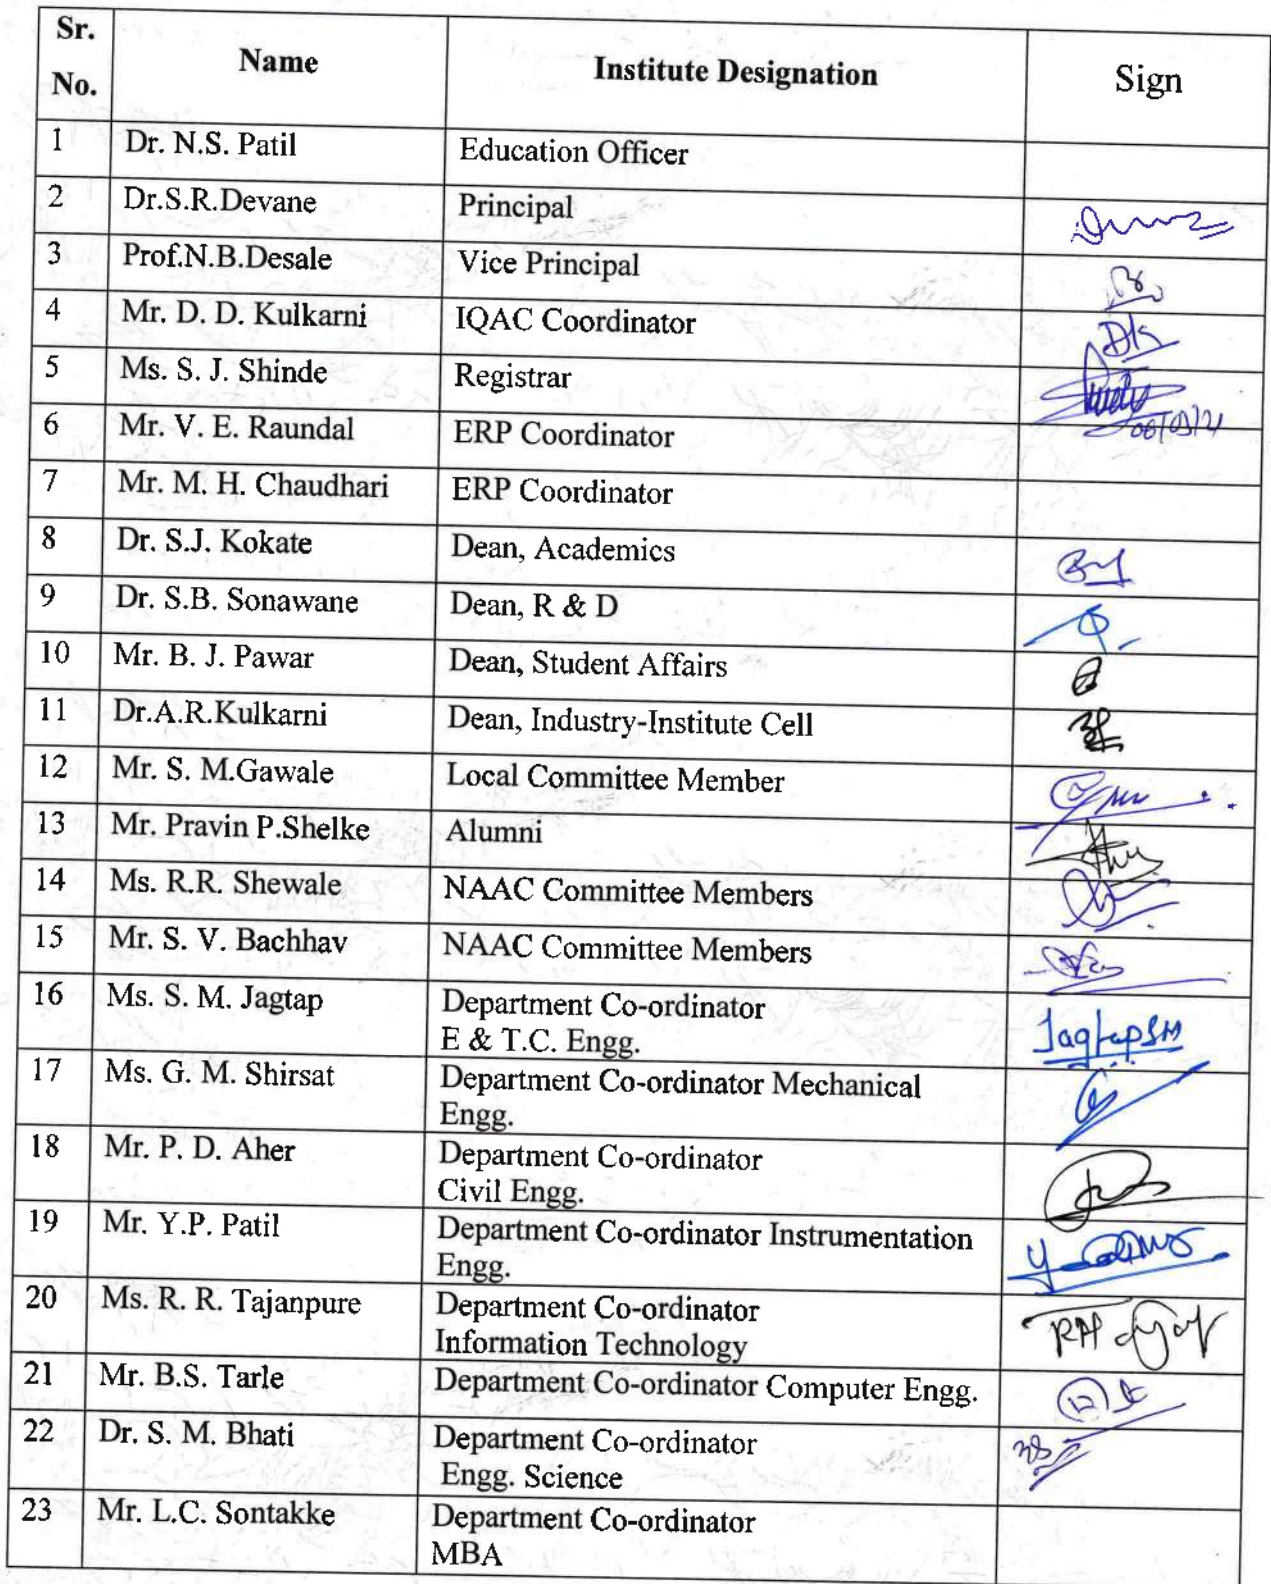 Sr. No. Name Institute Designation Sign
1 Dr. N.S. Patil Education Officer
2 Dr.S.R.Devane Principal
3 Prof.N.B.Desale Vice Principal
4 Mr. D. D. Kulkarni IQAC Coordinator
5 Ms. S. J. Shinde Registrar
6 Mr. V. E. Raundal ERP Coordinator
7 Mr. M. H. Chaudhari ERP Coordinator
8 Dr. S.J. Kokate Dean, Academics
9 Dr. S.B. Sonawane Dean, R & D
10 Mr. B. J. Pawar Dean, Student Affairs
11 Dr.A.R.Kulkarni Dean, Industry-Institute Cell
12 Mr. S. M.Gawale Local Committee Member
13 Mr. Pravin P.Shelke Alumni
14 Ms. R.R. Shewale NAAC Committee Members
15 Mr. S. V. Bachhav NAAC Committee Members
16 Ms. S. M. Jagtap Department Co-ordinator JagtapSM
E & T.C. Engg.
17 Ms. G. M. Shirsat Department Co-ordinator Mechanical
Engg.
18 Mr. P. D. Aher Department Co-ordinator
Civil Engg.
19 Mr. Y.P. Patil Department Co-ordinator Instrumentation
Engg.
20 Ms. R. R. Tajanpure Department Co-ordinator
Information Technology
21 Mr. B.S. Tarle Department Co-ordinator Computer Engg.
22 Dr. S. M. Bhati Department Co-ordinator
Engg. Science
23 Mr. L.C. Sontakke Department Co-ordinator
MBA